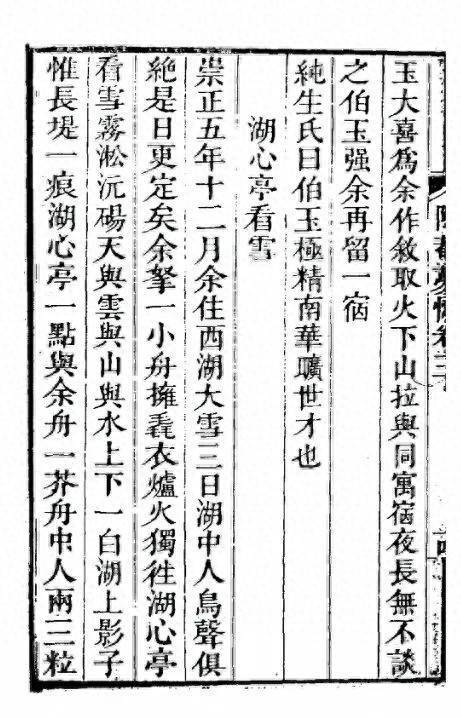 陶菴夢憶卷三
玉大喜爲余作敘取火下山拉與同寓宿夜長無不談
之伯玉强余再留一宿
純生氏曰伯玉極精南華曠世才也
湖心亭看雪
崇正五年十二月余住西湖大雪三日湖中人鳥聲俱
絶是日更定矣余拏一小舟擁毳衣爐火獨往湖心亭
看雪霧淞沅碭天與雲與山與水上下一白湖上影子
惟長堤一痕湖心亭一點與余舟一芥舟中人兩三粒